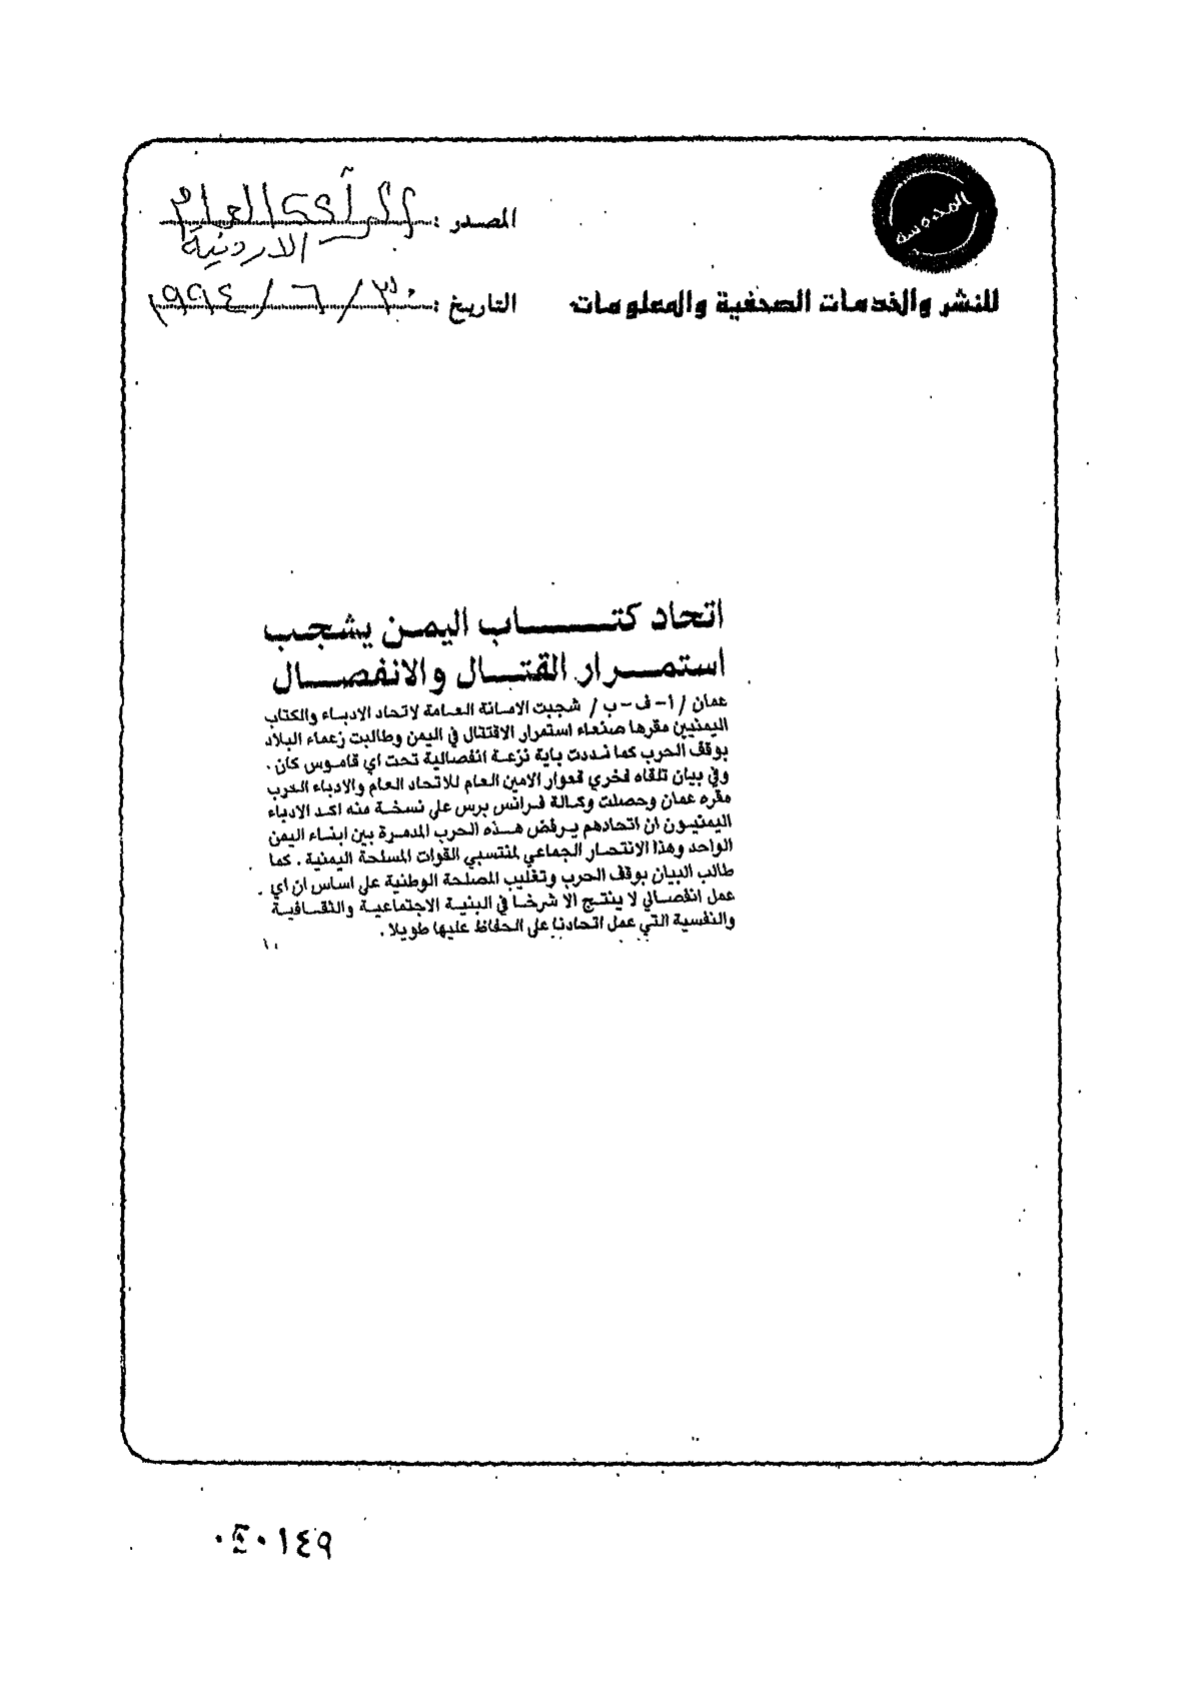 المصدر : الرأي العام
الاردنية
التاريخ : ٣٠ / ٦ / ١٩٩٤م
للنشر والخدمات الصحفية والمعلومات
اتحاد كتـــــــاب اليمـن يشـجـب
استمـــرار القتـــال والانفصـــال
عمان / أ- ف - ب / شجبت الامانة العامة لاتحاد الادباء والكتاب
اليمنيين مقرها صنعاء استمرار الاقتتال في اليمن وطالبت زعماء البلاد
بوقف الحرب كما نددت باية نزعة انفصالية تحت اي قاموس كان .
وفي بيان تلقاه فخري قعوار الامين العام للاتحاد العام والادباء العرب
مقره عمان وحصلت وكالة فرانس برس على نسخة منه اكد الادباء
اليمنيون ان اتحادهم يرفض هذه الحرب المدمرة بين ابناء اليمن
الواحد وهذا الانتحار الجماعي لمنتسبي القوات المسلحة اليمنية . كما
طالب البيان بوقف الحرب وتغليب المصلحة الوطنية على اساس ان اي
عمل انفصالي لا ينتج الا شرخا في البنية الاجتماعية والثقافية
والنفسية التي عمل اتحادنا على الحفاظ عليها طويلا .